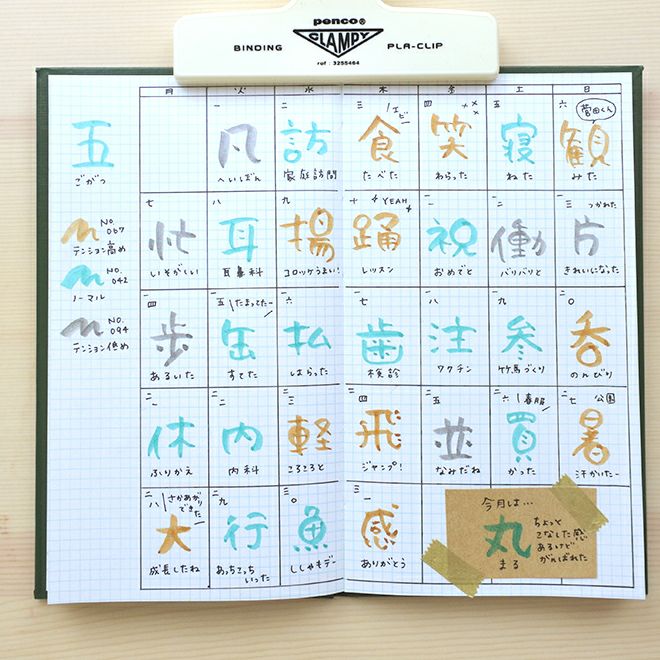 penco®
BINDING CLAMPY PLA-CLIP
ref : 3255464
月 火 水 木 金 土 日
五
ごがつ
No. 067
テンション高め
No. 042
ノーマル
No. 094
テンション低め
一
凡
へいぼん
二
訪
家庭訪問
三
エビ
食
たべた
四
笑
わらった
五
寝
ねた
六
菅田くん
観
みた
七
忙
いそがしい
八
耳
耳鼻科
九
揚
コロッケうまい!
十
YEAH
踊
レッスン
一一
祝
おめでと
一二
働
バリバリと
一三
つかれた
片
きれいになった
一四
歩
あるいた
一五
たまってたー
缶
すてた
一六
払
はらった
一七
歯
検診
一八
注
ワクチン
一九
参
竹馬づくり
二〇
呑
のんびり
二一
休
ふりかえ
二二
内
内科
二三
軽
ころころと
二四
飛
ジャンプ!
二五
並
なみだね
二六
春服
買
かった
二七
公園
暑
汗かいたー
二八
さかあがり
できた
大
成長したね
二九
行
あっちこっち
いった
三〇
魚
ししゃもデー
三一
感
ありがとう
今月は...
丸
まる
ちょっと
こなした感
あるけど
がんばれた